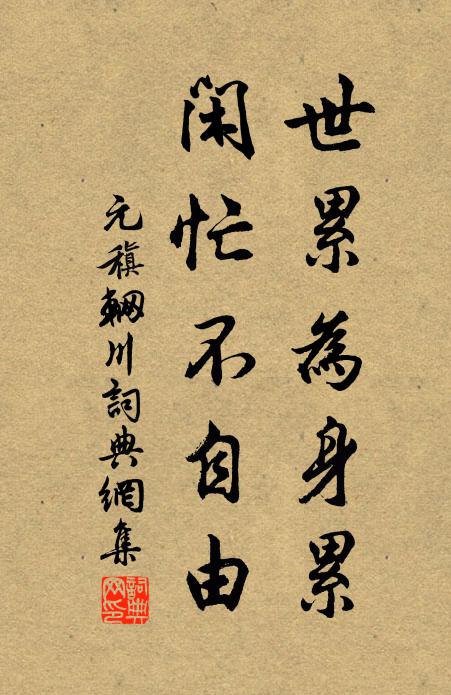 世累為身累
閑忙不自由
元稹輞川詞典網集
詞典
網印